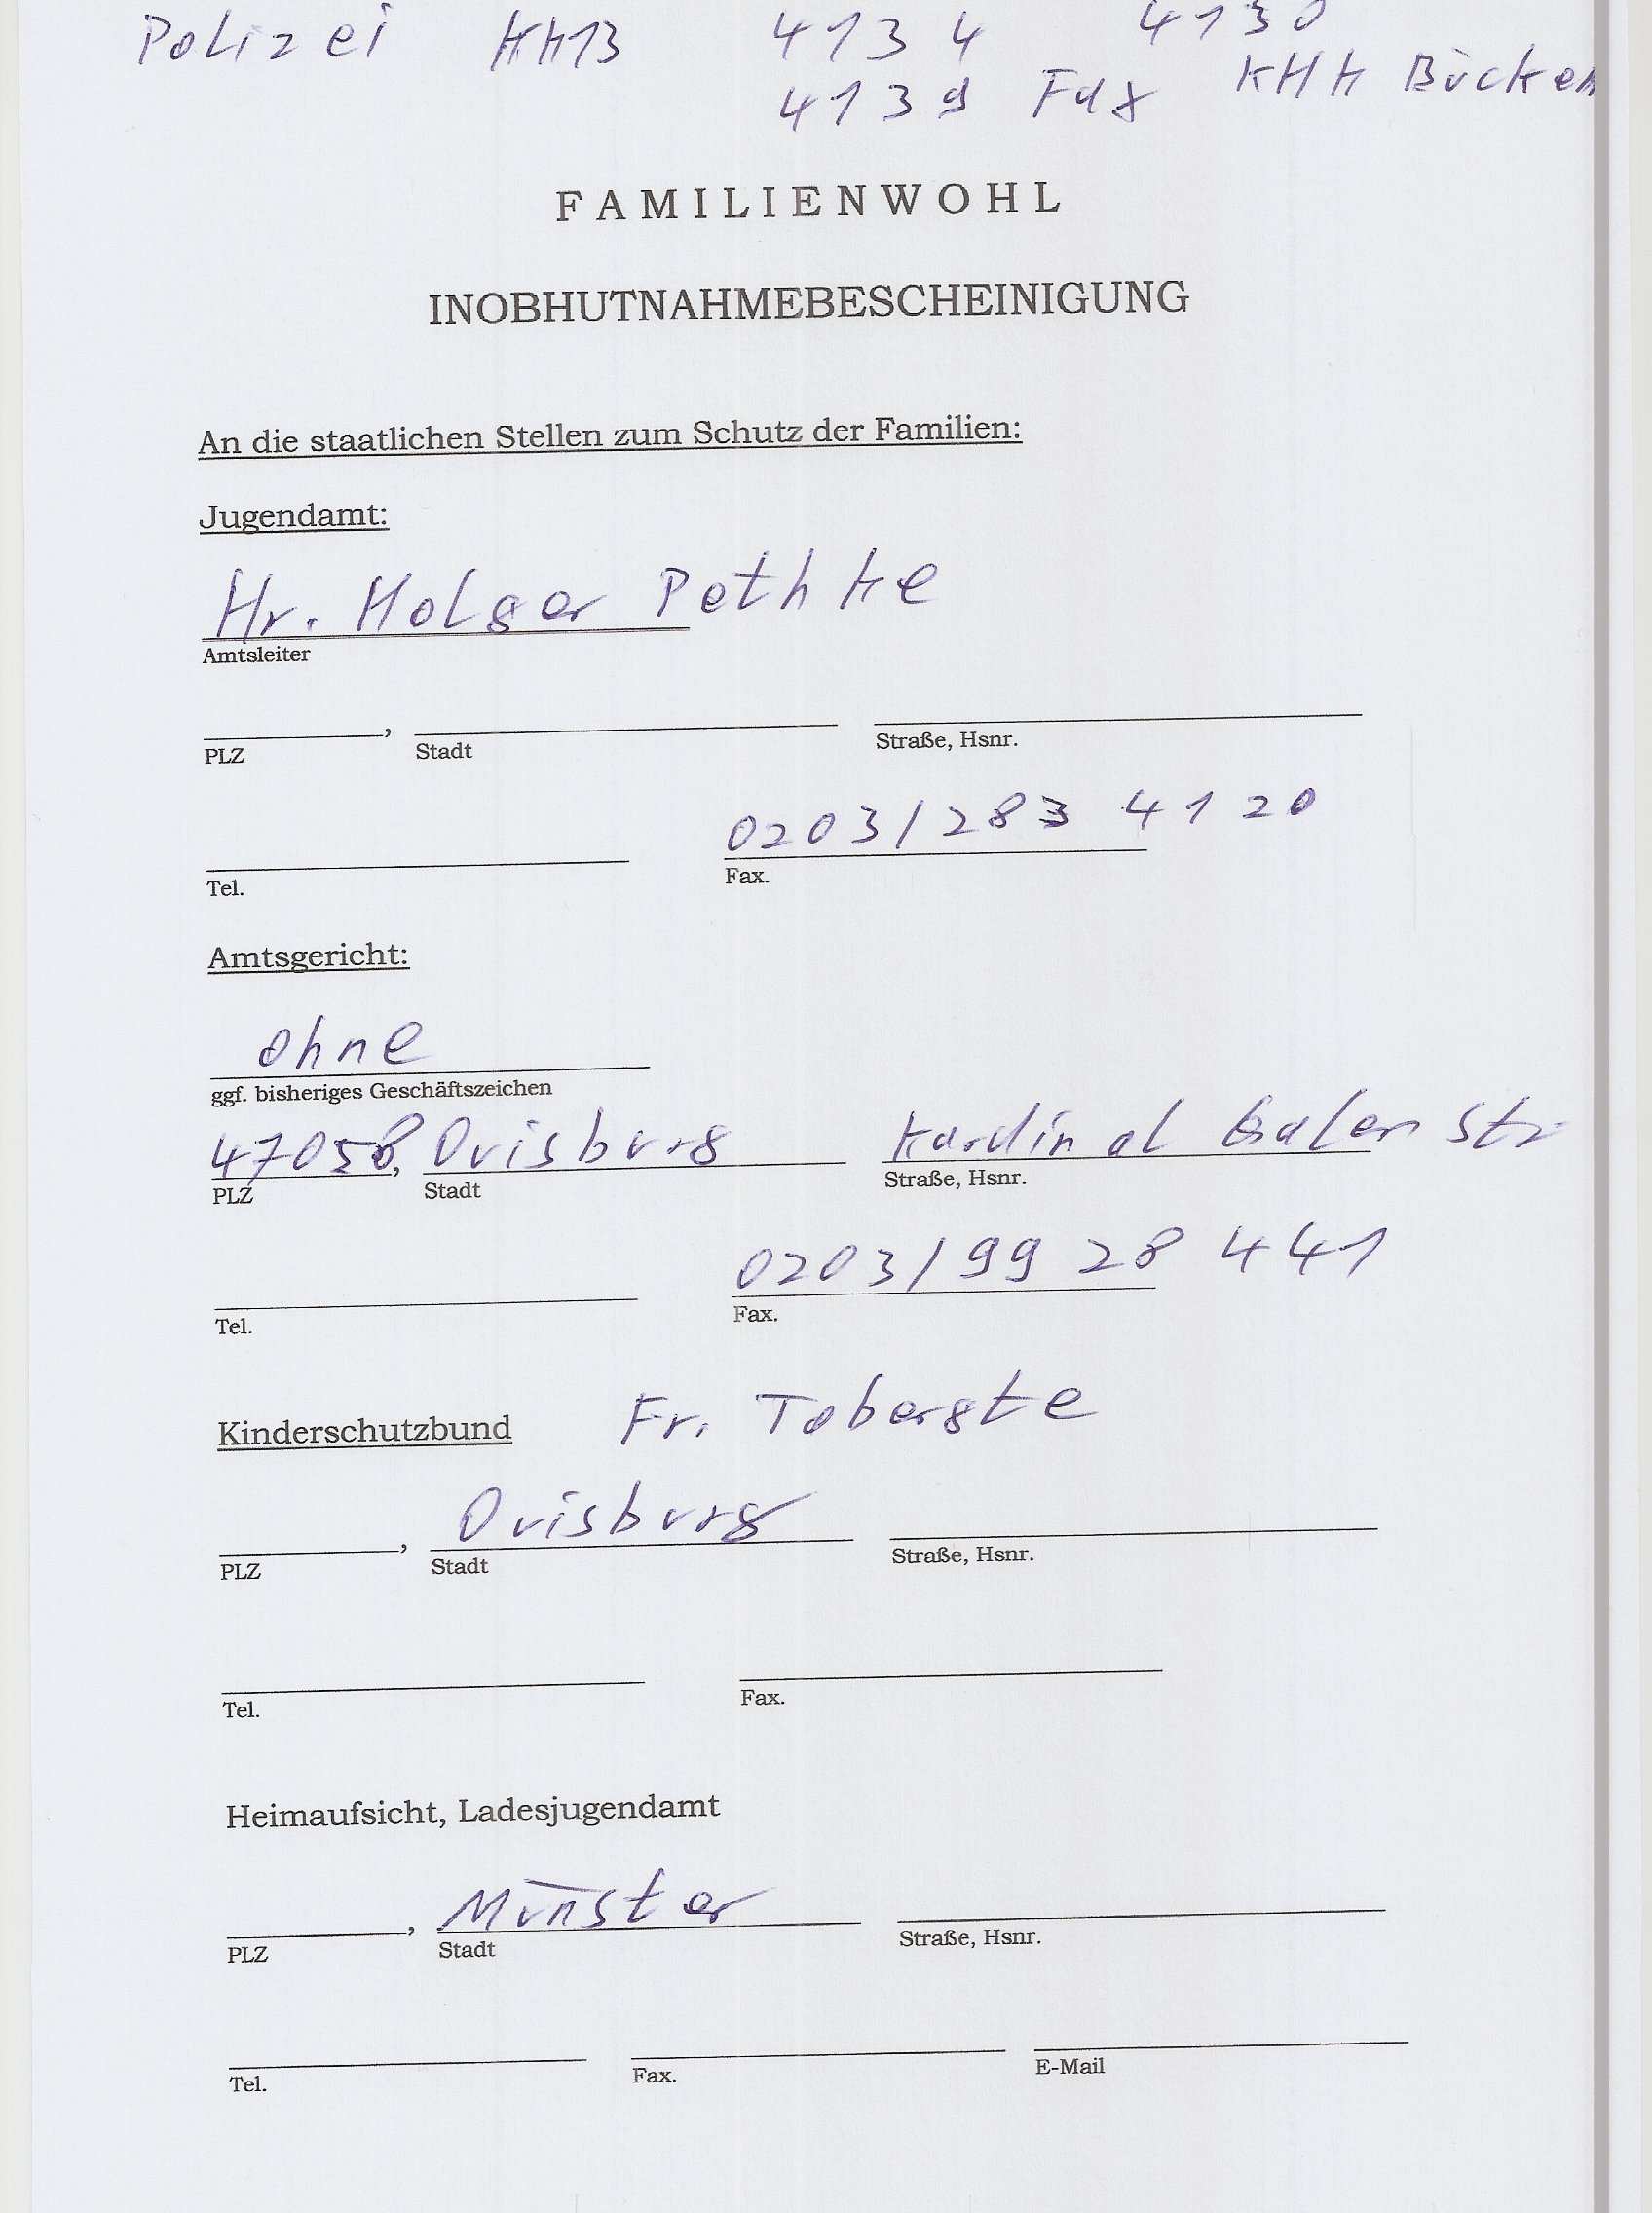 Polizei KK13 4134 4130
4139 Fax KHK Bücken
FAMILIENWOHL
INOBHUTNAHMEBESCHEINIGUNG
An die staatlichen Stellen zum Schutz der Familien:
Jugendamt:
Hr. Holger Pethke
Amtsleiter
,
PLZ Stadt Straße, Hsnr.
0203/283 4120
Tel. Fax.
Amtsgericht:
ohne
ggf. bisheriges Geschäftszeichen
47058, Duisburg Kardinal Galen Str
PLZ Stadt Straße, Hsnr.
0203/99 28 441
Tel. Fax.
Kinderschutzbund Fr. Toberste
, Duisburg
PLZ Stadt Straße, Hsnr.
Tel. Fax.
Heimaufsicht, Ladesjugendamt
, Münster
PLZ Stadt Straße, Hsnr.
Tel. Fax. E-Mail